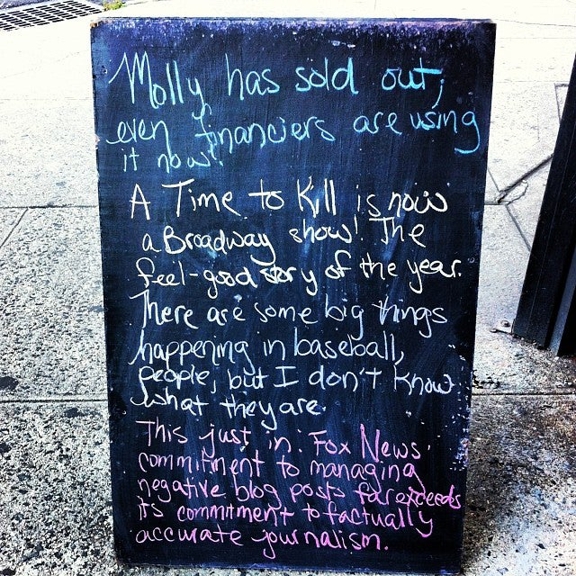 Molly has sold out;
even financiers are using
it now!
A Time to Kill is now
a Broadway show! The
feel-good story of the year.
There are some big things
happening in baseball,
people, but I don't know
what they are.
This just in: Fox News'
commitment to managing
negative blog posts far exceeds
its commitment to factually
accurate journalism.